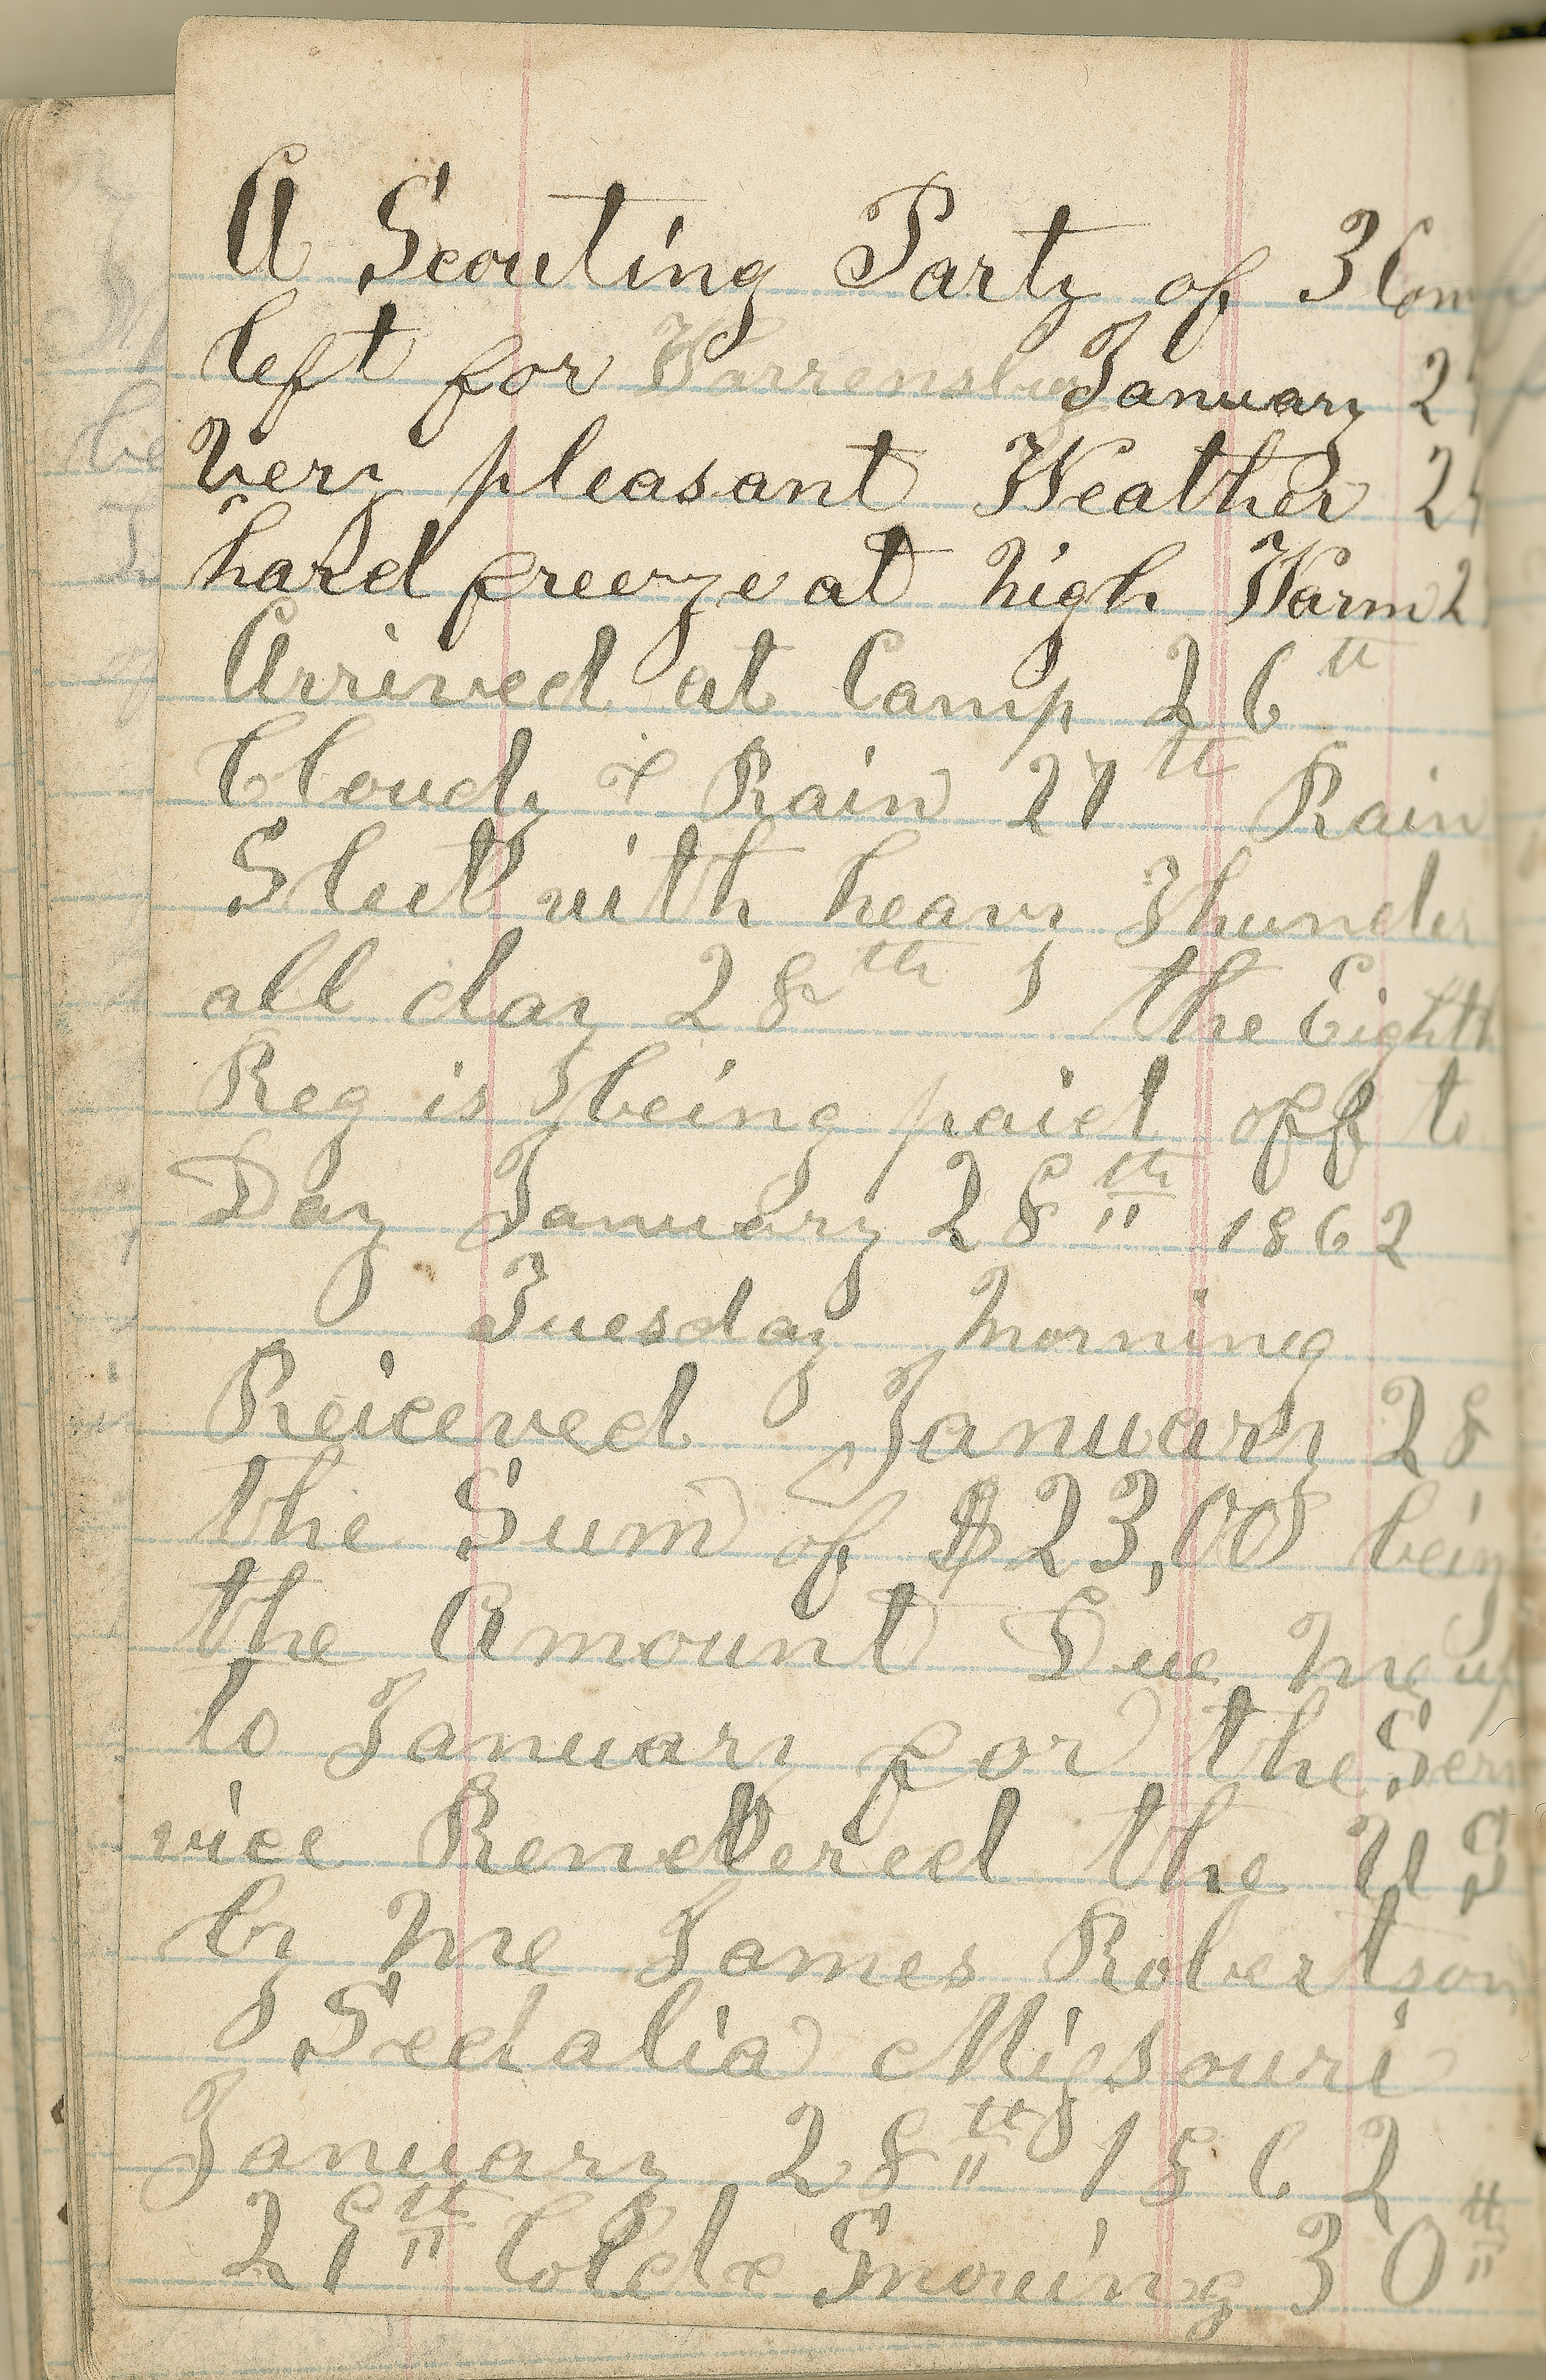 A Scouting Party of 3 Com
left for Warrensburg January 2
Very pleasant Weather 2
hard freeze at high Warm 2
Arrived at Camp 26th
Cloudy & Rain 27th Rain
Sleet with heavy Thunder
all day 28th the Eighth
Reg is being paid off to
Day January 28th 1862
Tuesday Morning
Reiceved January 28
the Sum of $23,00 being
the Amount Due me up
to January for the Ser
vice Rendered the U S
by me James Robertson
Sedalia Missouri
January 28th 1862
29th Cold & Snowing 30th